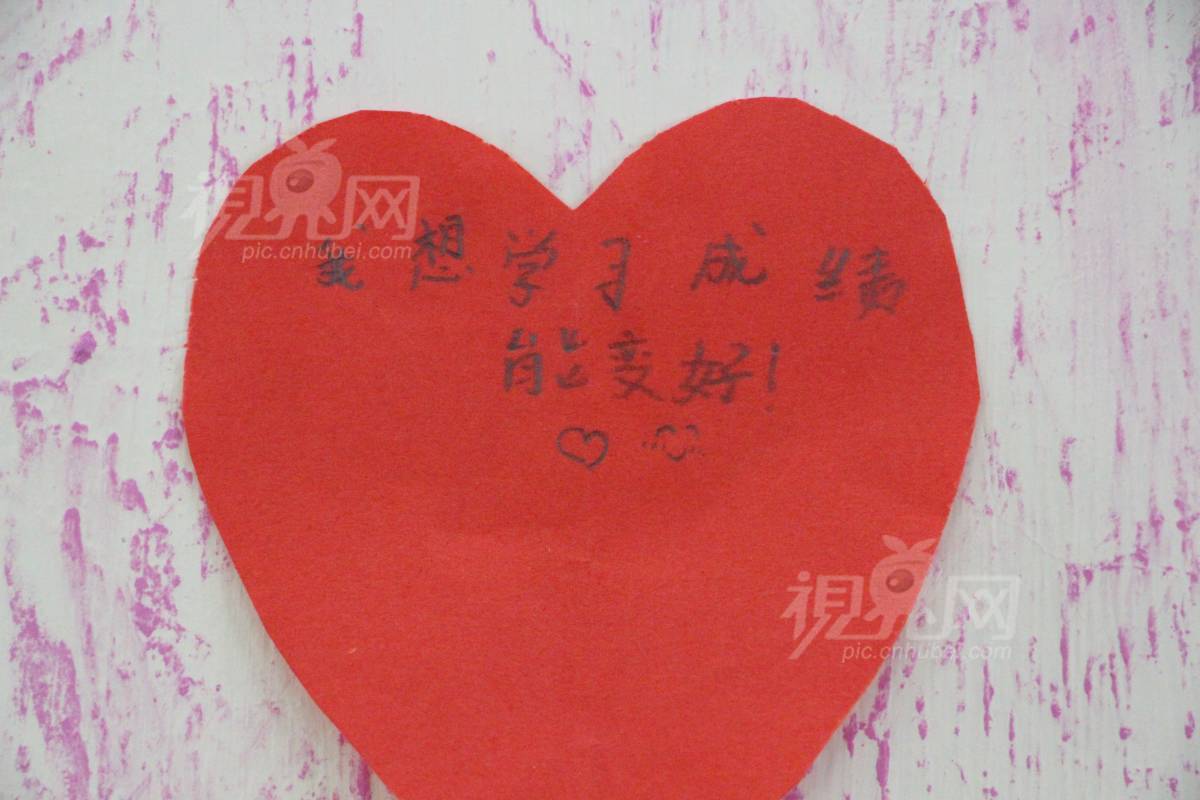 視界网
pic.cnhubei.com
我想学习成绩
能变好!
視界网
pic.cnhubei.com